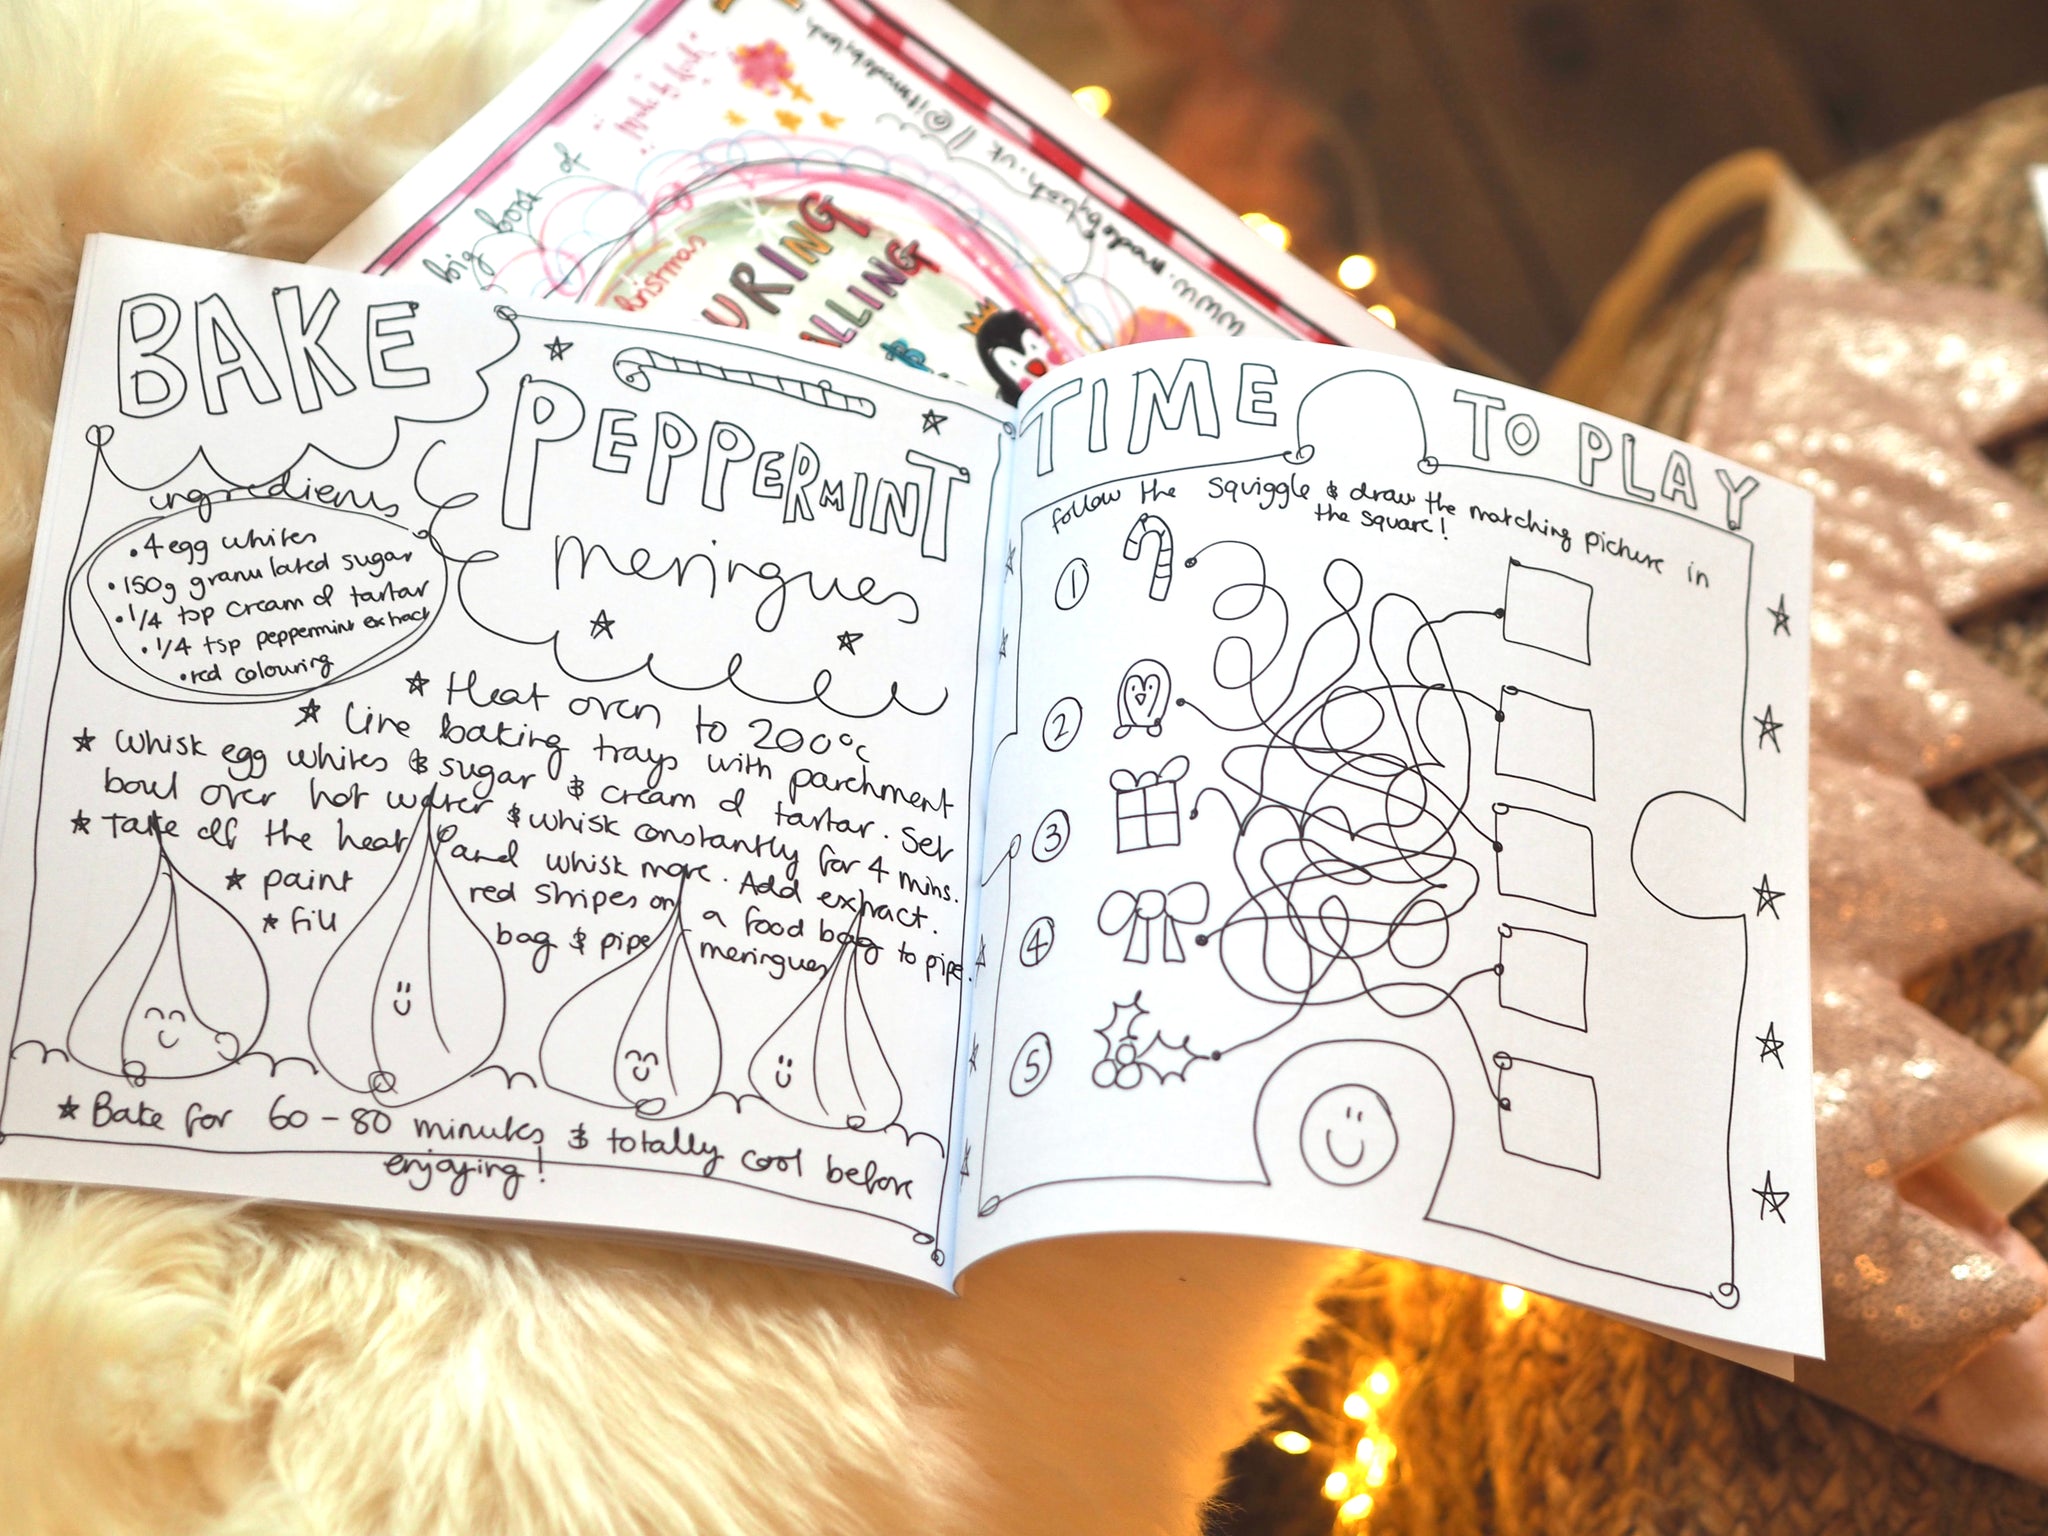 BAKE
PEPPERMINT
meringues
ingredients
• 4 egg whites
• 150g granulated sugar
• 1/4 tsp cream of tartar
• 1/4 tsp peppermint extract
• red colouring
★ Heat oven to 200°c
★ Line baking trays with parchment
★ Whisk egg whites & sugar & cream of tartar. Set
bowl over hot water & whisk constantly for 4 mins.
★ Take off the heat and whisk more. Add extract.
★ paint red stripes on a food bag to pipe.
★ fill bag & pipe meringues
★ Bake for 60-80 minutes & totally cool before
enjoying!
TIME TO PLAY
follow the squiggle & draw the matching picture in
the square!
1
2
3
4
5
big boost of
"made by leah"
christmas
URING
LLING
www.madebyleah.uk // @itsmadebyleah